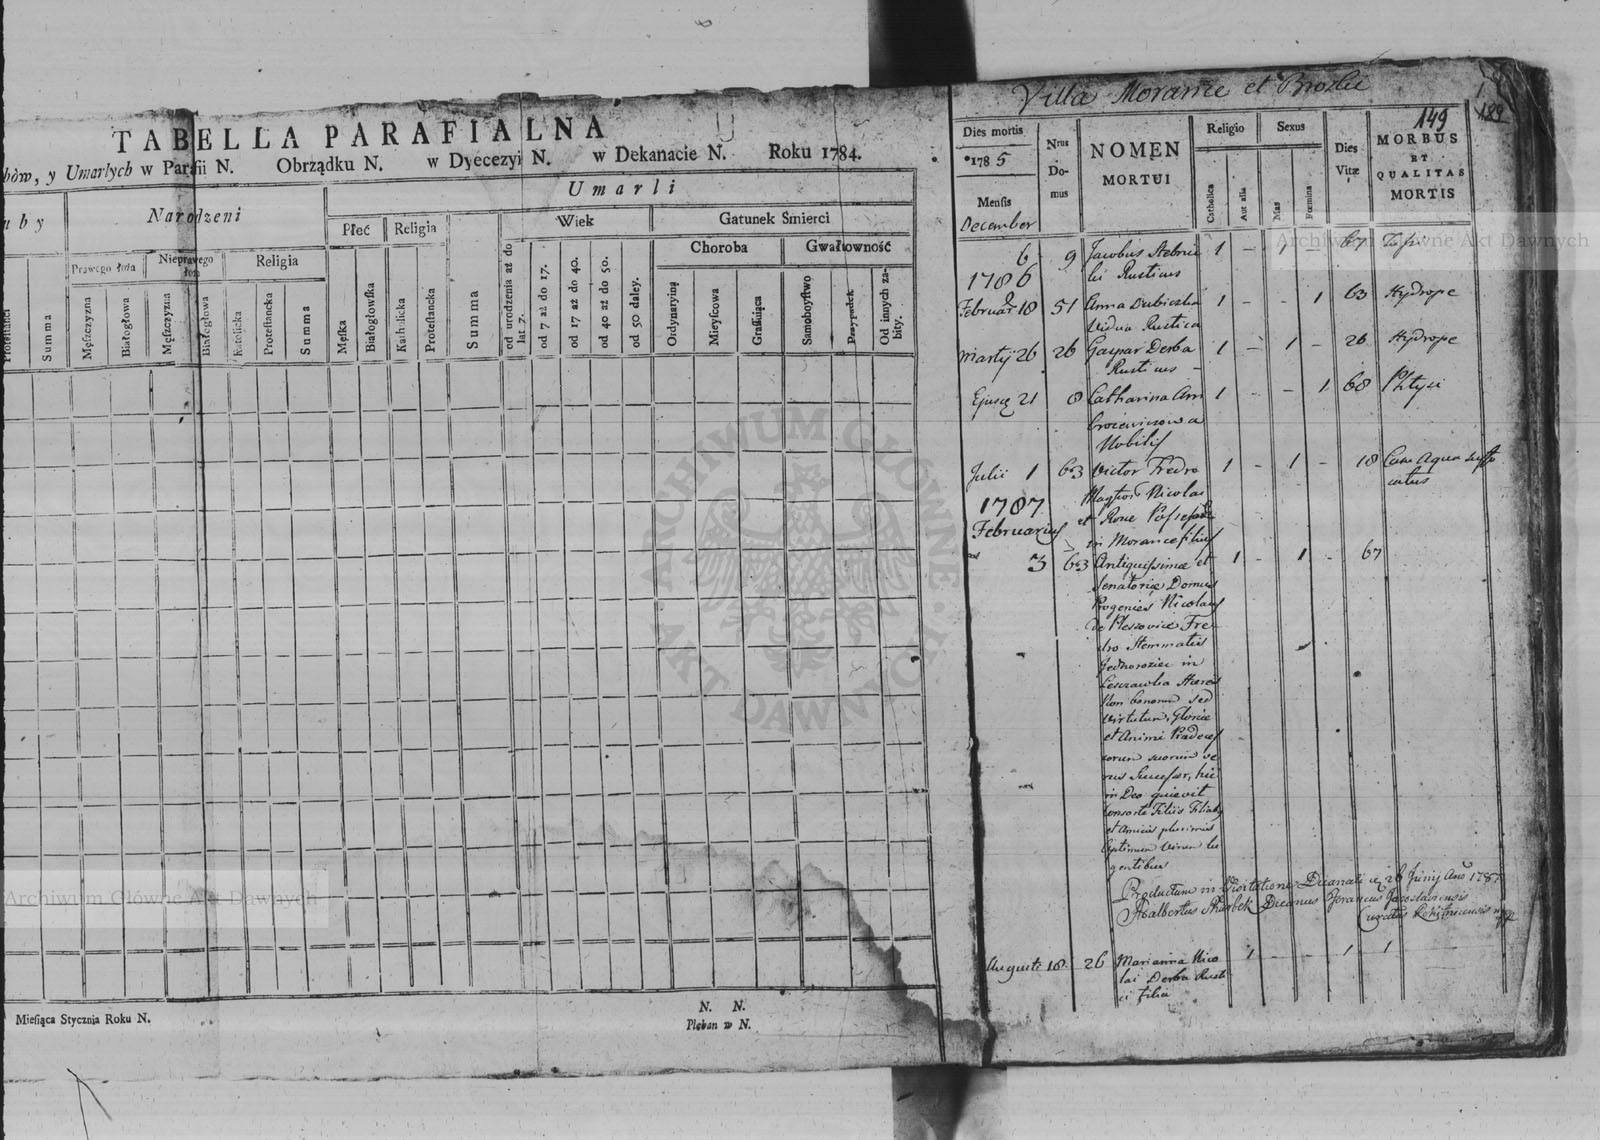 TABELLA PARAFIALNA
bów, y Umarłych w Parafii N. Obrządku N. w Dyecezyi N. w Dekanacie N. Roku 1784.
Umarli
uby
Narodzeni
Płeć
Religia
Wiek
Gatunek Smierci
Prawego łoża
Nieprawego łoża
Religia
Choroba
Gwałtowność
Protestanci
Summa
Męszczyzna
Białogłowa
Męszczyzna
Białogłowa
Katolicka
Protestancka
Summa
Męska
Białogłowska
Katholicka
Protestancka
Summa
od urodzenia aż do lat 7.
od 7 aż do 17.
od 17 aż do 40.
od 40 aż do 50.
od 50 daley.
Ordynaryina
Mieyscowa
Grassuiąca
Samoboystwo
Przypadek
Od innych zabity.
Miesiąca Stycznia Roku N.
N. N.
Pleban w N.
Villa Morance et
149
189
Dies mortis
178 5
Mensis
December
Nrus
Do-
mus
NOMEN
MORTUI
Religio
Catholica
Aut alia
Sexus
Mas
Fœmina
Dies
Vitæ
MORBUS
ET
QUALITAS
MORTIS
6 9 Jacobus 1 - 67
1786 Rusticus
Februar 18 51 Anna Dubiczka 1 - - 1 63 Hydrope
Vidua Rustica
Martij 26 26 Gaspar Derba 1 - 1 - 26 Hydrope
Rusticus -
21 8 Catharina Am 1 - - 1 68 Phtysi
brozewiczowa
Nobilis
Julii 1 63 Victor Fredro 1 - 1 - 18 Aqua suffo
catus
1787 Nicolai
Februarius et
in Morance filius
3 63 Antiquissimæ et 1 - 1 - 67
Senatoriæ Domus
Progenies Nicolaus
de Pleszowice Fre
dro Stemmatis
Jednoroziec in
Leszczawka Hæres
Non bonorum sed
Virtutum, Gloriæ
et Animi Prædeces
sorum suorum ve
rus Successor, hic
in Deo quievit
Consorte Filiis Filiabq
et Amicis plurimis
Optimum Virum lu
gentibus
Productum in Visitatione Decanali 26 Junij Ano 1787
Adalbertus Skarbek Decanus Foraneus Jaroslaviensis
Curatus
Augusti 18 26 Marianna Nico 1 - - 1 1
lai Derba Rusti
ci filia
Archiwum Główne Akt Dawnych
Archiwum Główne Akt Dawnych
ARCHIWUM GŁÓWNE
AKT DAWNYCH